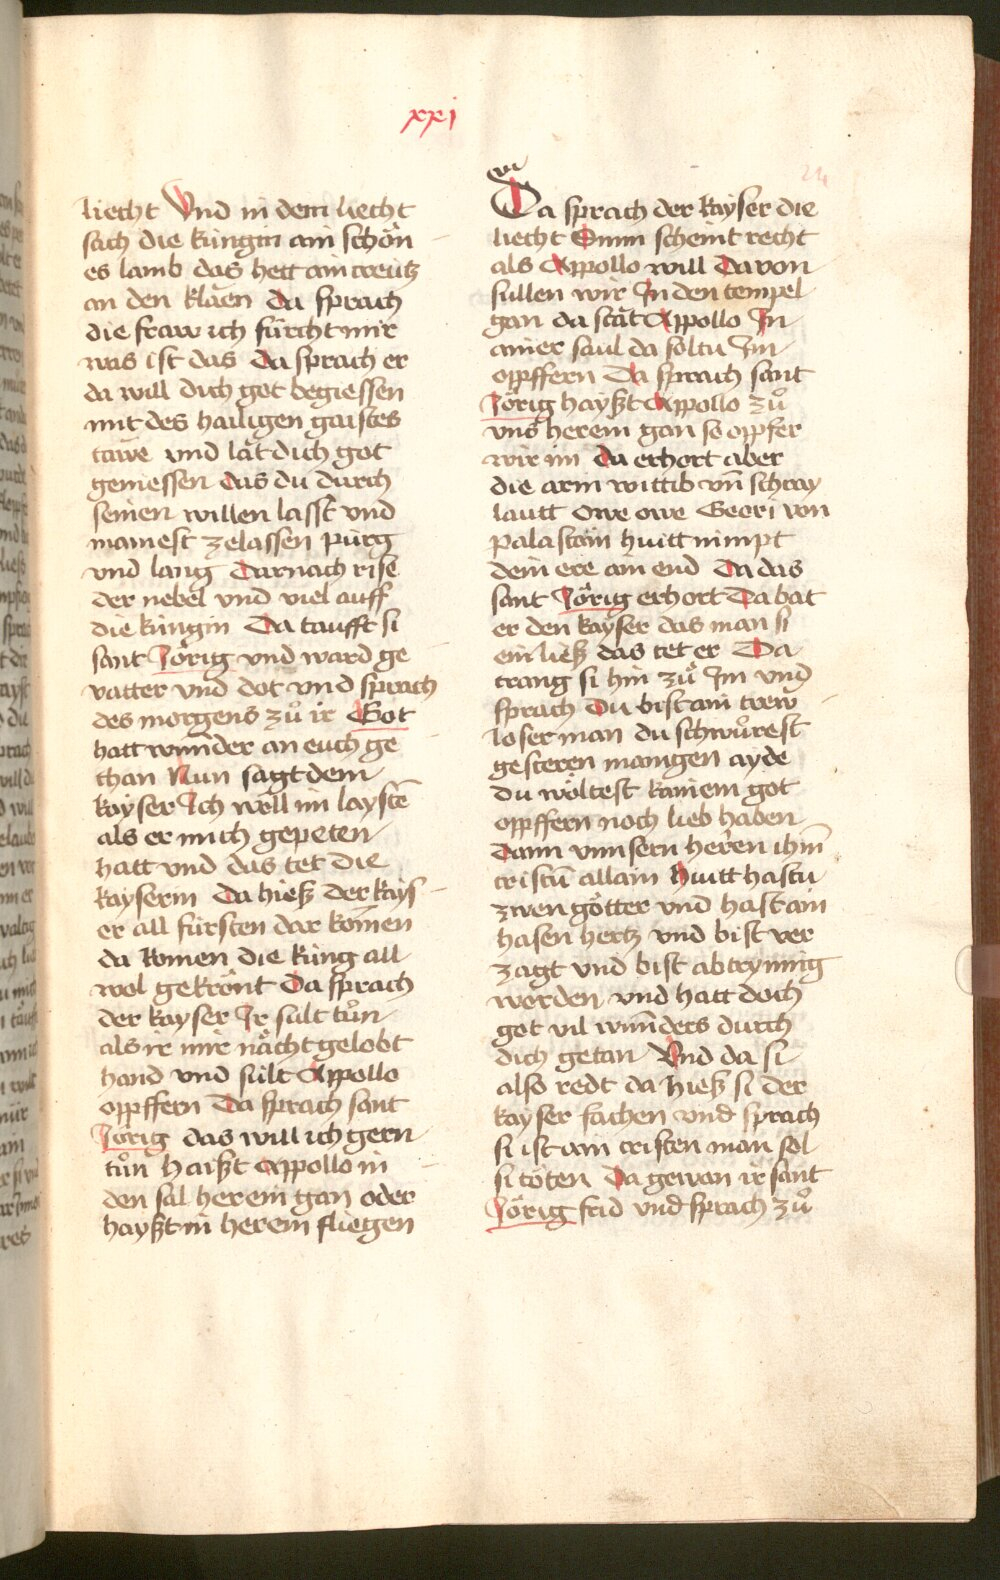 xxi
24
liecht Vnd in dem liecht
sach die küngin ain schön
es lamb das hett ain creütz
an den klaen da sprach
die fraw ich fürcht mir
was ist das da sprach er
da will dich got begiessen
mit des hailigen gaistes
tawe vnd lät dich got
geniessen das du durch
seinen willen lasst vnd
mainest zelassen pürg
vnd lang Darnach rise
der nebel vnd viel auff
die küngin Da taufft si
sant Jörig vnd ward ge
vatter vnd dot vnd sprach
des morgens zů ir Got
hatt wunder an euch ge
than Nun sagt dem
kayser Ich wöll im laystē
als er mich gepeten
hatt vnd das tet die
kayserin Da hieß der kays
er all fürsten dar komen
da komen die küng all
wol gekrönt Da sprach
der kayser Ir sült tůn
als ir mir nächt gelobt
hand vnd sült Appollo
oppffern Da sprach sant
Jörig das will ich gern
tůn haißt Appollo in
den sal herein gan oder
hayßt in herein fliegen
Da sprach der kayser die
liecht Sunn scheint recht
als Appollo will Da von
süllen wir In den tempel
gan da stät Appollo In
ainer saul da soltu Im
oppffern Da sprach sant
Jörig hayßt Appollo zů
vns herein gan so oppfer
wir im da erhort aber
die arm wittib vn̄ schray
lautt owe owe Geori von
palastain huitt nimpt
dein ere ain end Da das
sant Jörig erhort Da bat
er den kayser das man si
ein ließ das tet er Da
trang si hin zů Im vnd
sprach Du bist ain trew
loser man du schwůrest
gesteren maingen ayde
du wöltest kainem got
oppffern noch lieb haben
Dann vnnsern heren ihm̄
cristū allain huitt hastu
zwen götter vnd hast ain
hasen hertz vnd bist ver
zagt vnd bist abtrynnig
worden vnd hatt doch
got vil wunders durch
dich getan Vnd da si
also redt da hieß si der
kayser fachen vnd sprach
si ist ain cristen man sol
si töten Da gewan ir sant
Jörig frid vnd sprach zů